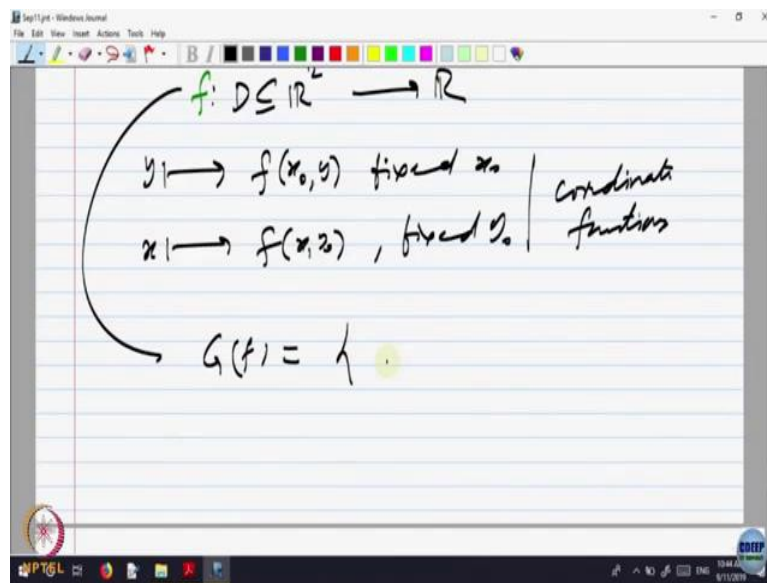 Sep11.jnt - Windows Journal
File Edit View Insert Actions Tools Help
B I
f: D ⊆ ℝ² ⟶ ℝ
y ⟼ f(x₀, y) fixed x₀
x ⟼ f(x, y₀), fixed y₀
coordinate
functions
G(f) = {
NPTEL
CDEEP
ENG
9/11/2019